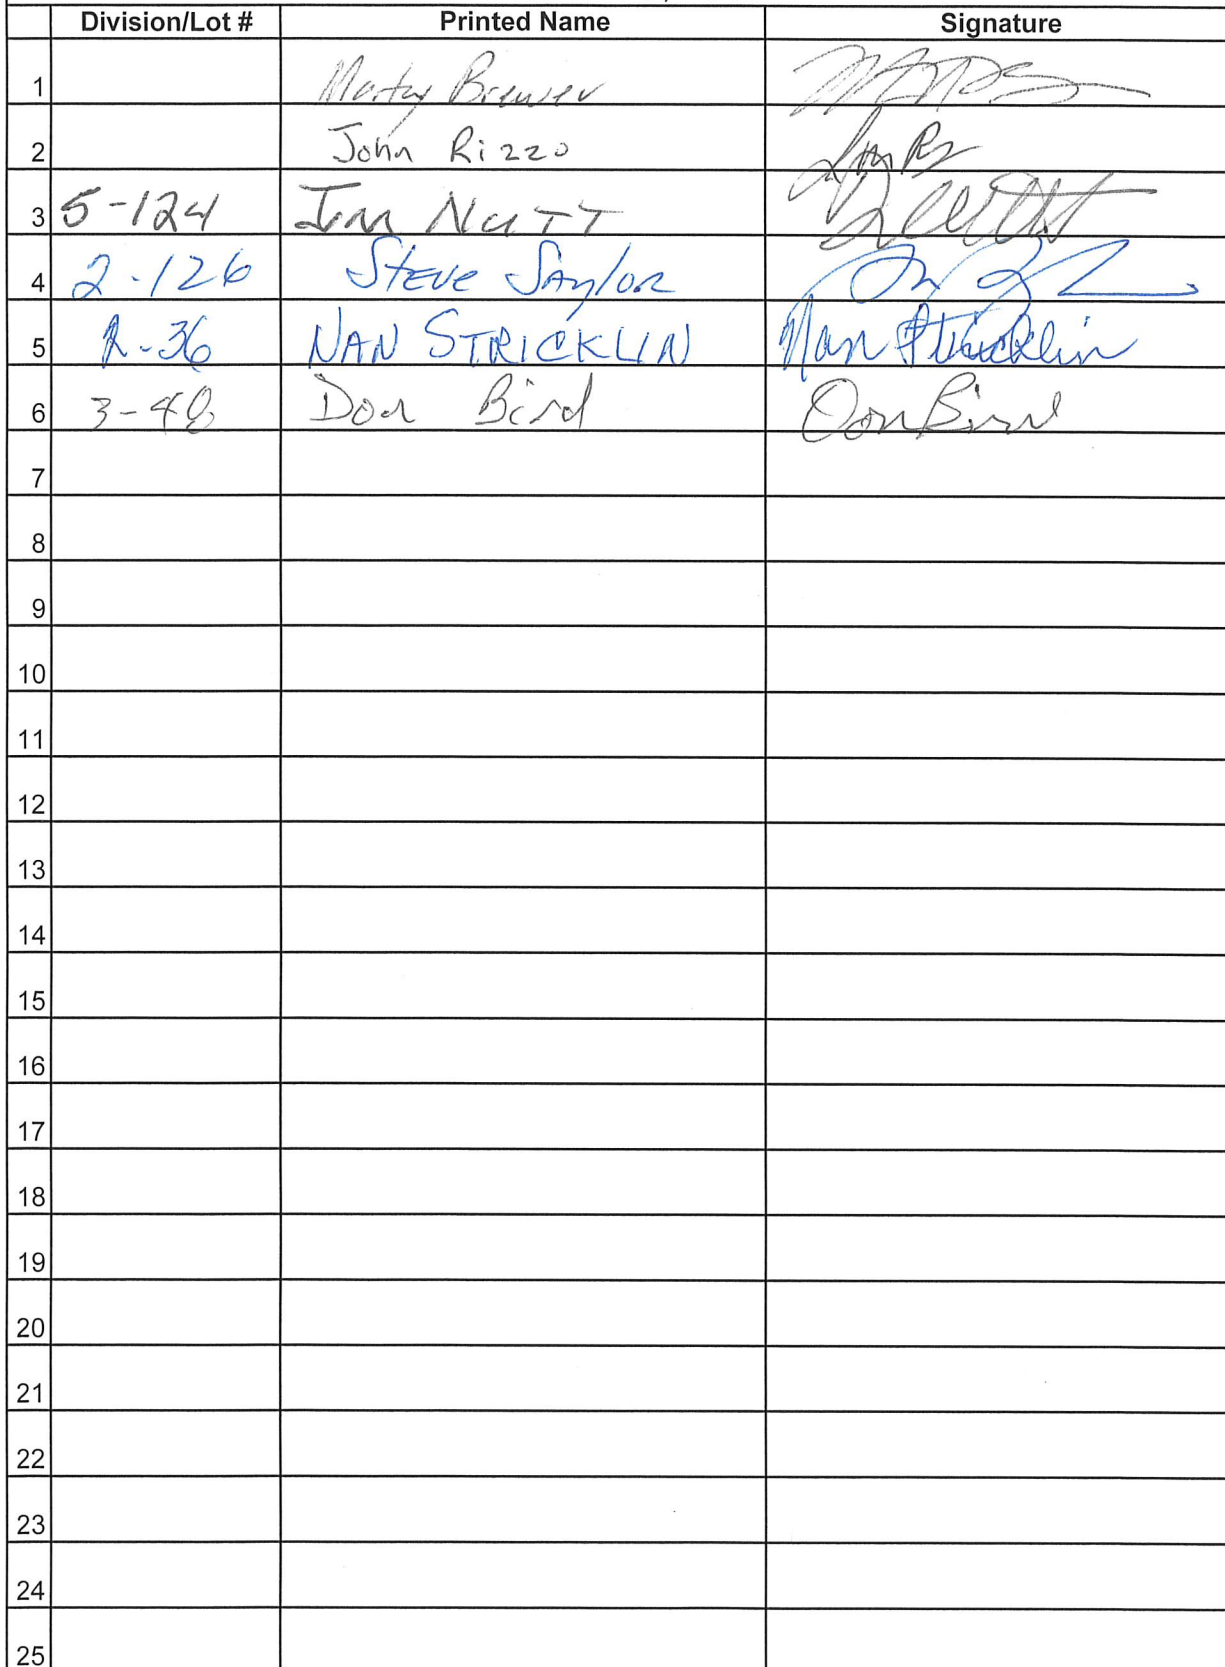 Division/Lot # Printed Name Signature
1 Marty Brewer
2 John Rizzo
3 5-124 Jim NuTT
4 2-126 Steve Saylor
5 2-36 NAN STRICKLIN Nan Stricklin
6 3-48 Don Bird Don Bird
7
8
9
10
11
12
13
14
15
16
17
18
19
20
21
22
23
24
25